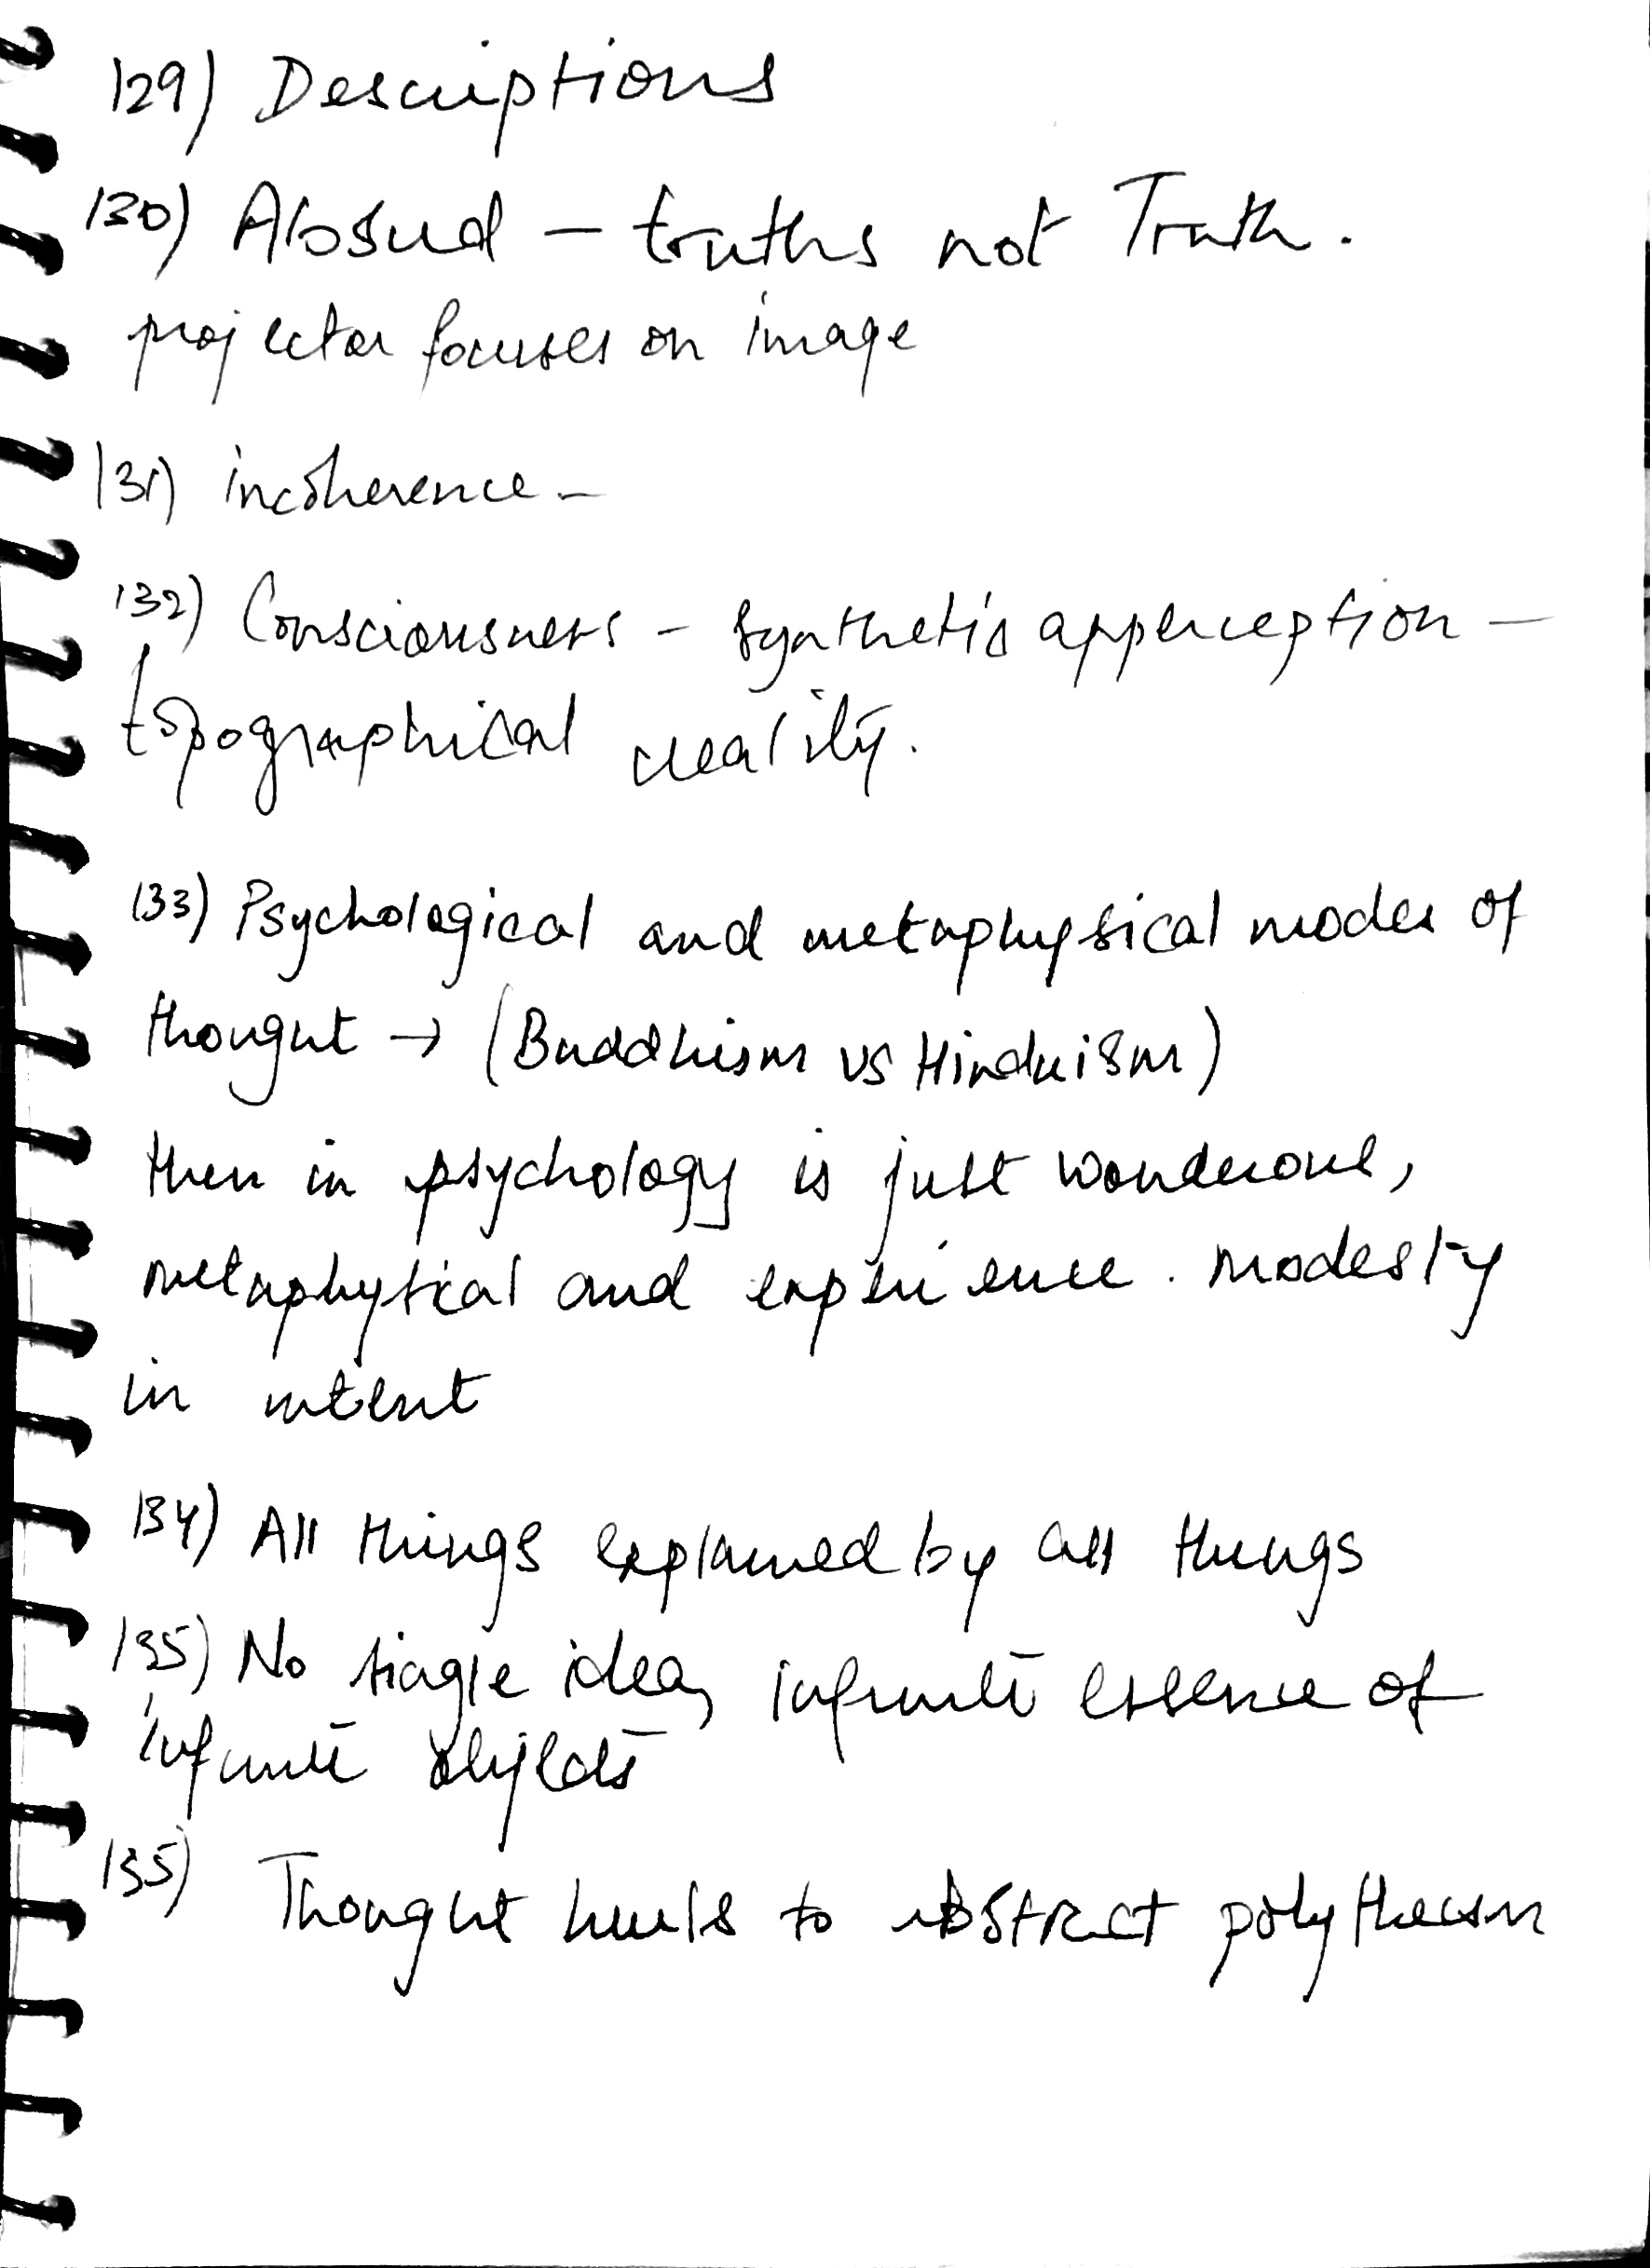 129) Descriptions
130) Absurd – truths not Truth.
projector focuses on image
131) incoherence –
132) Consciousness – synthetic apperception –
topographical reality.
133) Psychological and metaphysical modes of
thought → (Buddhism vs Hinduism)
then in psychology is just wonderous,
metaphysical and experience. modesty
in intent
134) All things explained by all things
135) No single idea, infinite essence of
infinite objects
135) Thought to abstract polytheism